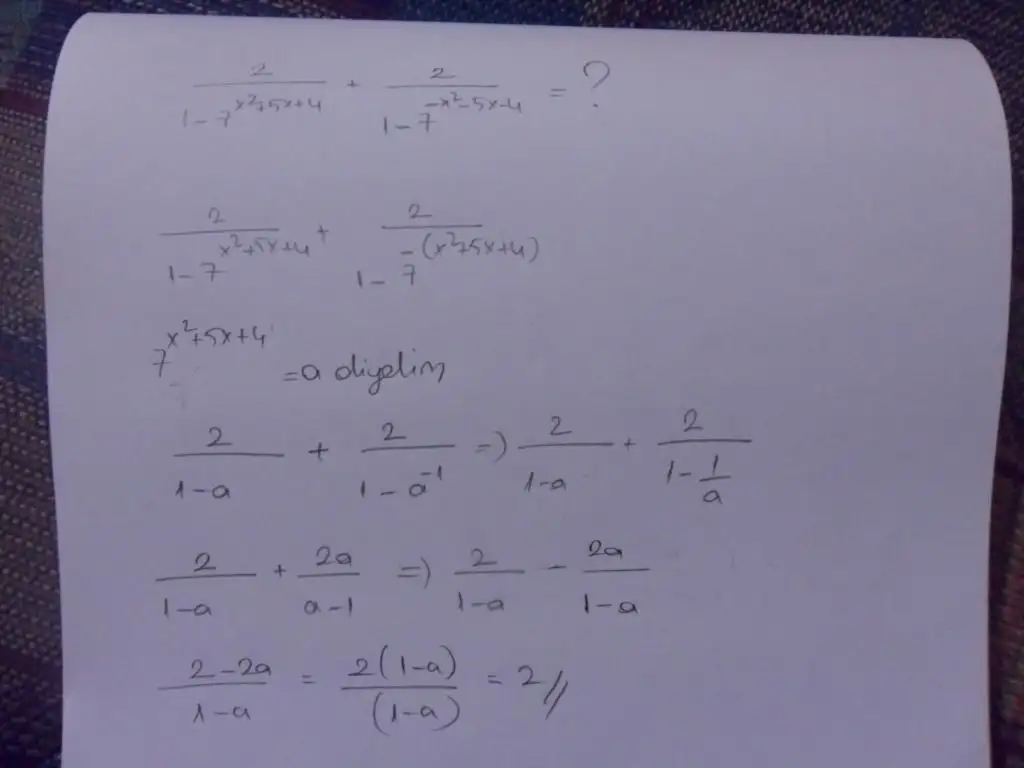 2/(1-7^(x²+5x+4)) + 2/(1-7^(-x²-5x-4)) = ?
2/(1-7^(x²+5x+4)) + 2/(1-7^(-(x²+5x+4)))
7^(x²+5x+4) = a diyelim
2/(1-a) + 2/(1-a⁻¹) => 2/(1-a) + 2/(1-1/a)
2/(1-a) + 2a/(a-1) => 2/(1-a) - 2a/(1-a)
(2-2a)/(1-a) = 2(1-a)/(1-a) = 2//